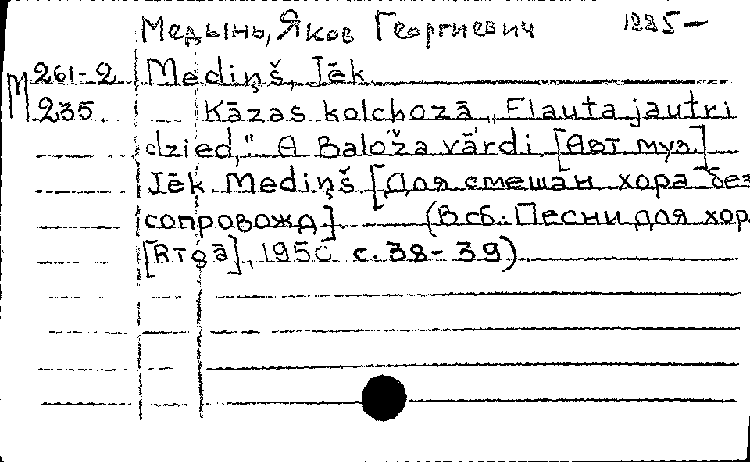 Медынь, Яков Георгиевич 1885-
М 261-2 Mediņš, Jēk
235. Kāzas kolchozā „Flauta jautri
dzied," A Baloža vārdi [Авт муз.]
Jēk Mediņš [Для смешан хора без
сопровожд.] (В сб.: Песни для хор
1950 с. 38-39)